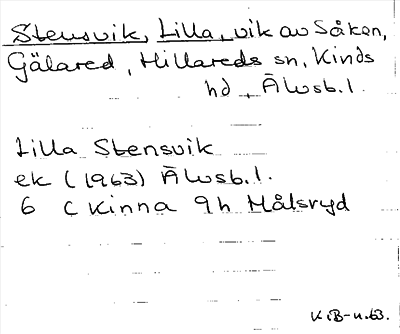 Stensvik, Lilla, vik av Såken,
Gälared, Hillareds sn, Kinds
hd, Älvsb.l.
Lilla Stensvik
ek (1963) Älvsb.l.
6 C Kinna 9h Målsryd
KiB-u.63.